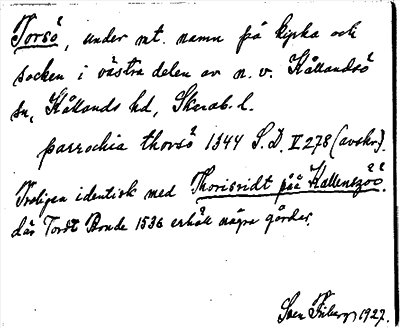 Torsö, under mt. namn på kyrka och
socken i västra delen av n. v. Kållandsö
sn, Kållands hd, Skarab. l.
parrochia thorsö 1344 S.D. V 278 (avskr).
Troligen identisk med Thorisridt påå Kallenszöö.
där Tordt Bonde 1536 erhöll några gårdar.
Sven 1927.